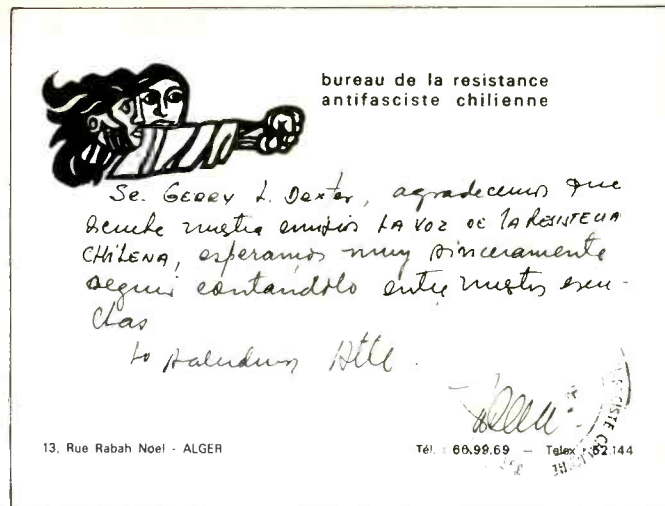 bureau de la resistance
antifasciste chilienne
Sr. GERRY L. Dexter, agradecemos que
escuche nuestra emisión LA VOZ DE LA RESISTECIA
CHILENA, esperamos muy sinceramente
seguir contándolo entre nuestros escu-
chas
lo saludamos Atte.
13, Rue Rabah Noel - ALGER
Tél. : 66.99.69 — Telex : 52.144